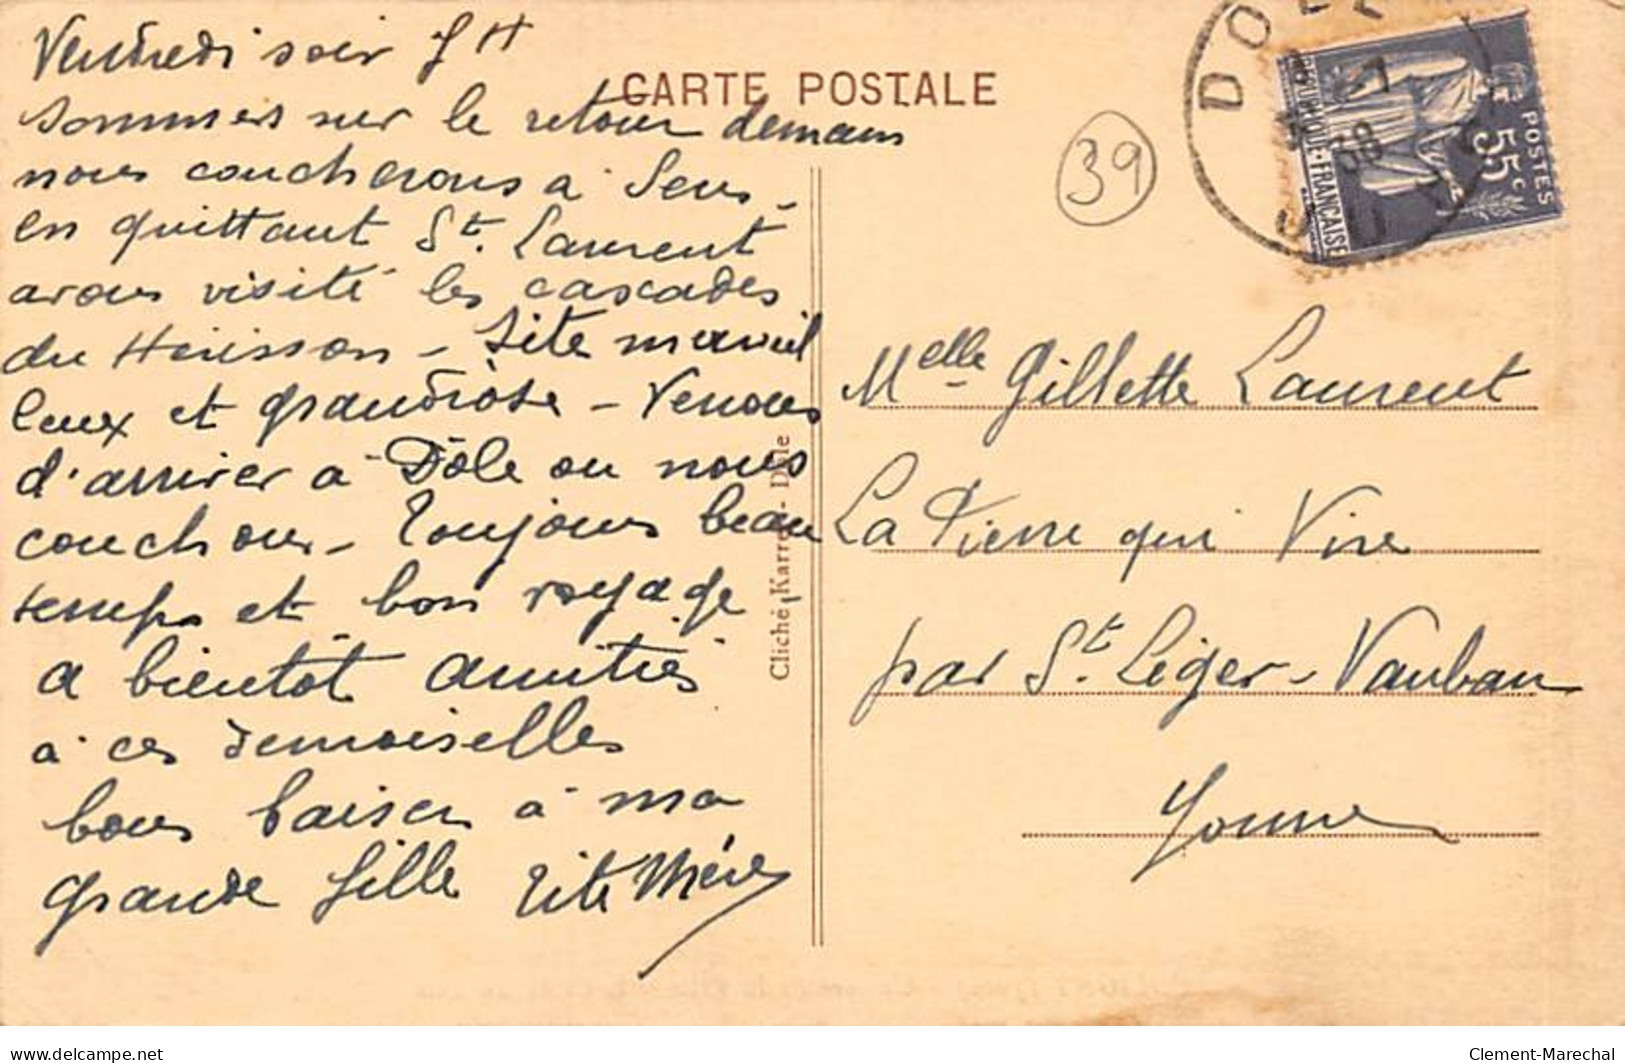 Vendredi soir 7H
sommes sur le retour demain
nous coucherons à Sens -
en quittant St. Laurent
avons visité les cascades
du Hérisson - site merveil
leux et grandiose - Venons
d'arriver à Dôle ou nous
couchons - Toujours beau
temps et bon voyage -
a bientôt amitiés
à ces demoiselles
bons baisers à ma
grande fille tite Mère
CARTE POSTALE
39
DOLE
RÉPUBLIQUE FRANÇAISE
POSTES
55c
JURA
Cliché Karrer - Dole
Melle Gillette Laurent
La Pierre qui Vire
par St. Léger - Vauban
Yonne
delcampe.net
Clement-Marechal